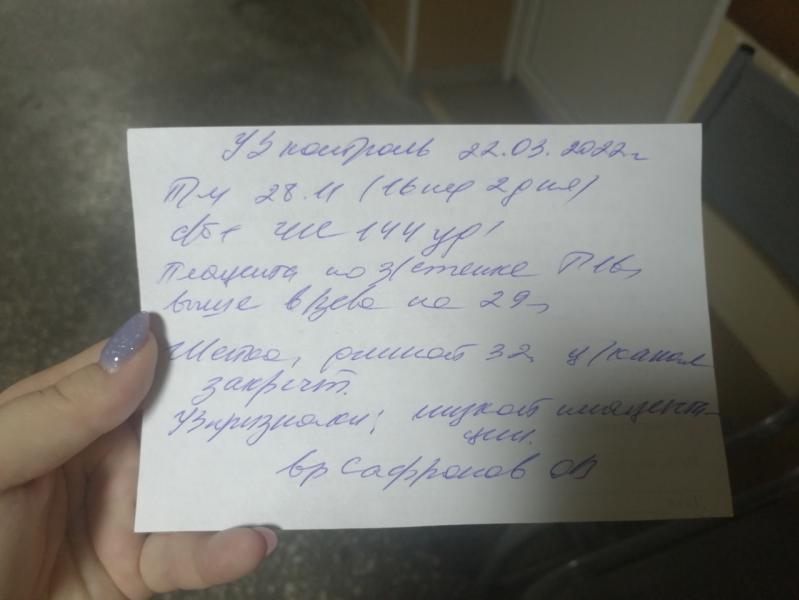 УЗ контроль 22.03.2022г
28.11 (16нед 2дня)
ЧСС 144 уд/
Плацента по з/стенке
выше в/зева на 29
Шейка, длиной 32, ц/канал
закрыт.
УЗпризнаки: низкой плацент-
ции.
вр Сафронов ОВ